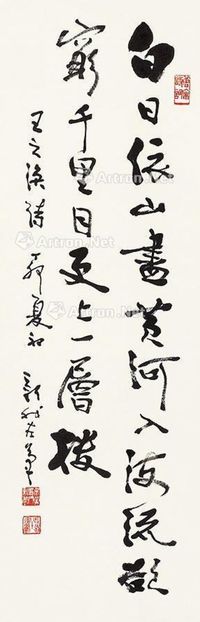 白日依山尽黄河入海流欲
穷千里目更上一层楼
王之涣诗
夏初
Artron.Net